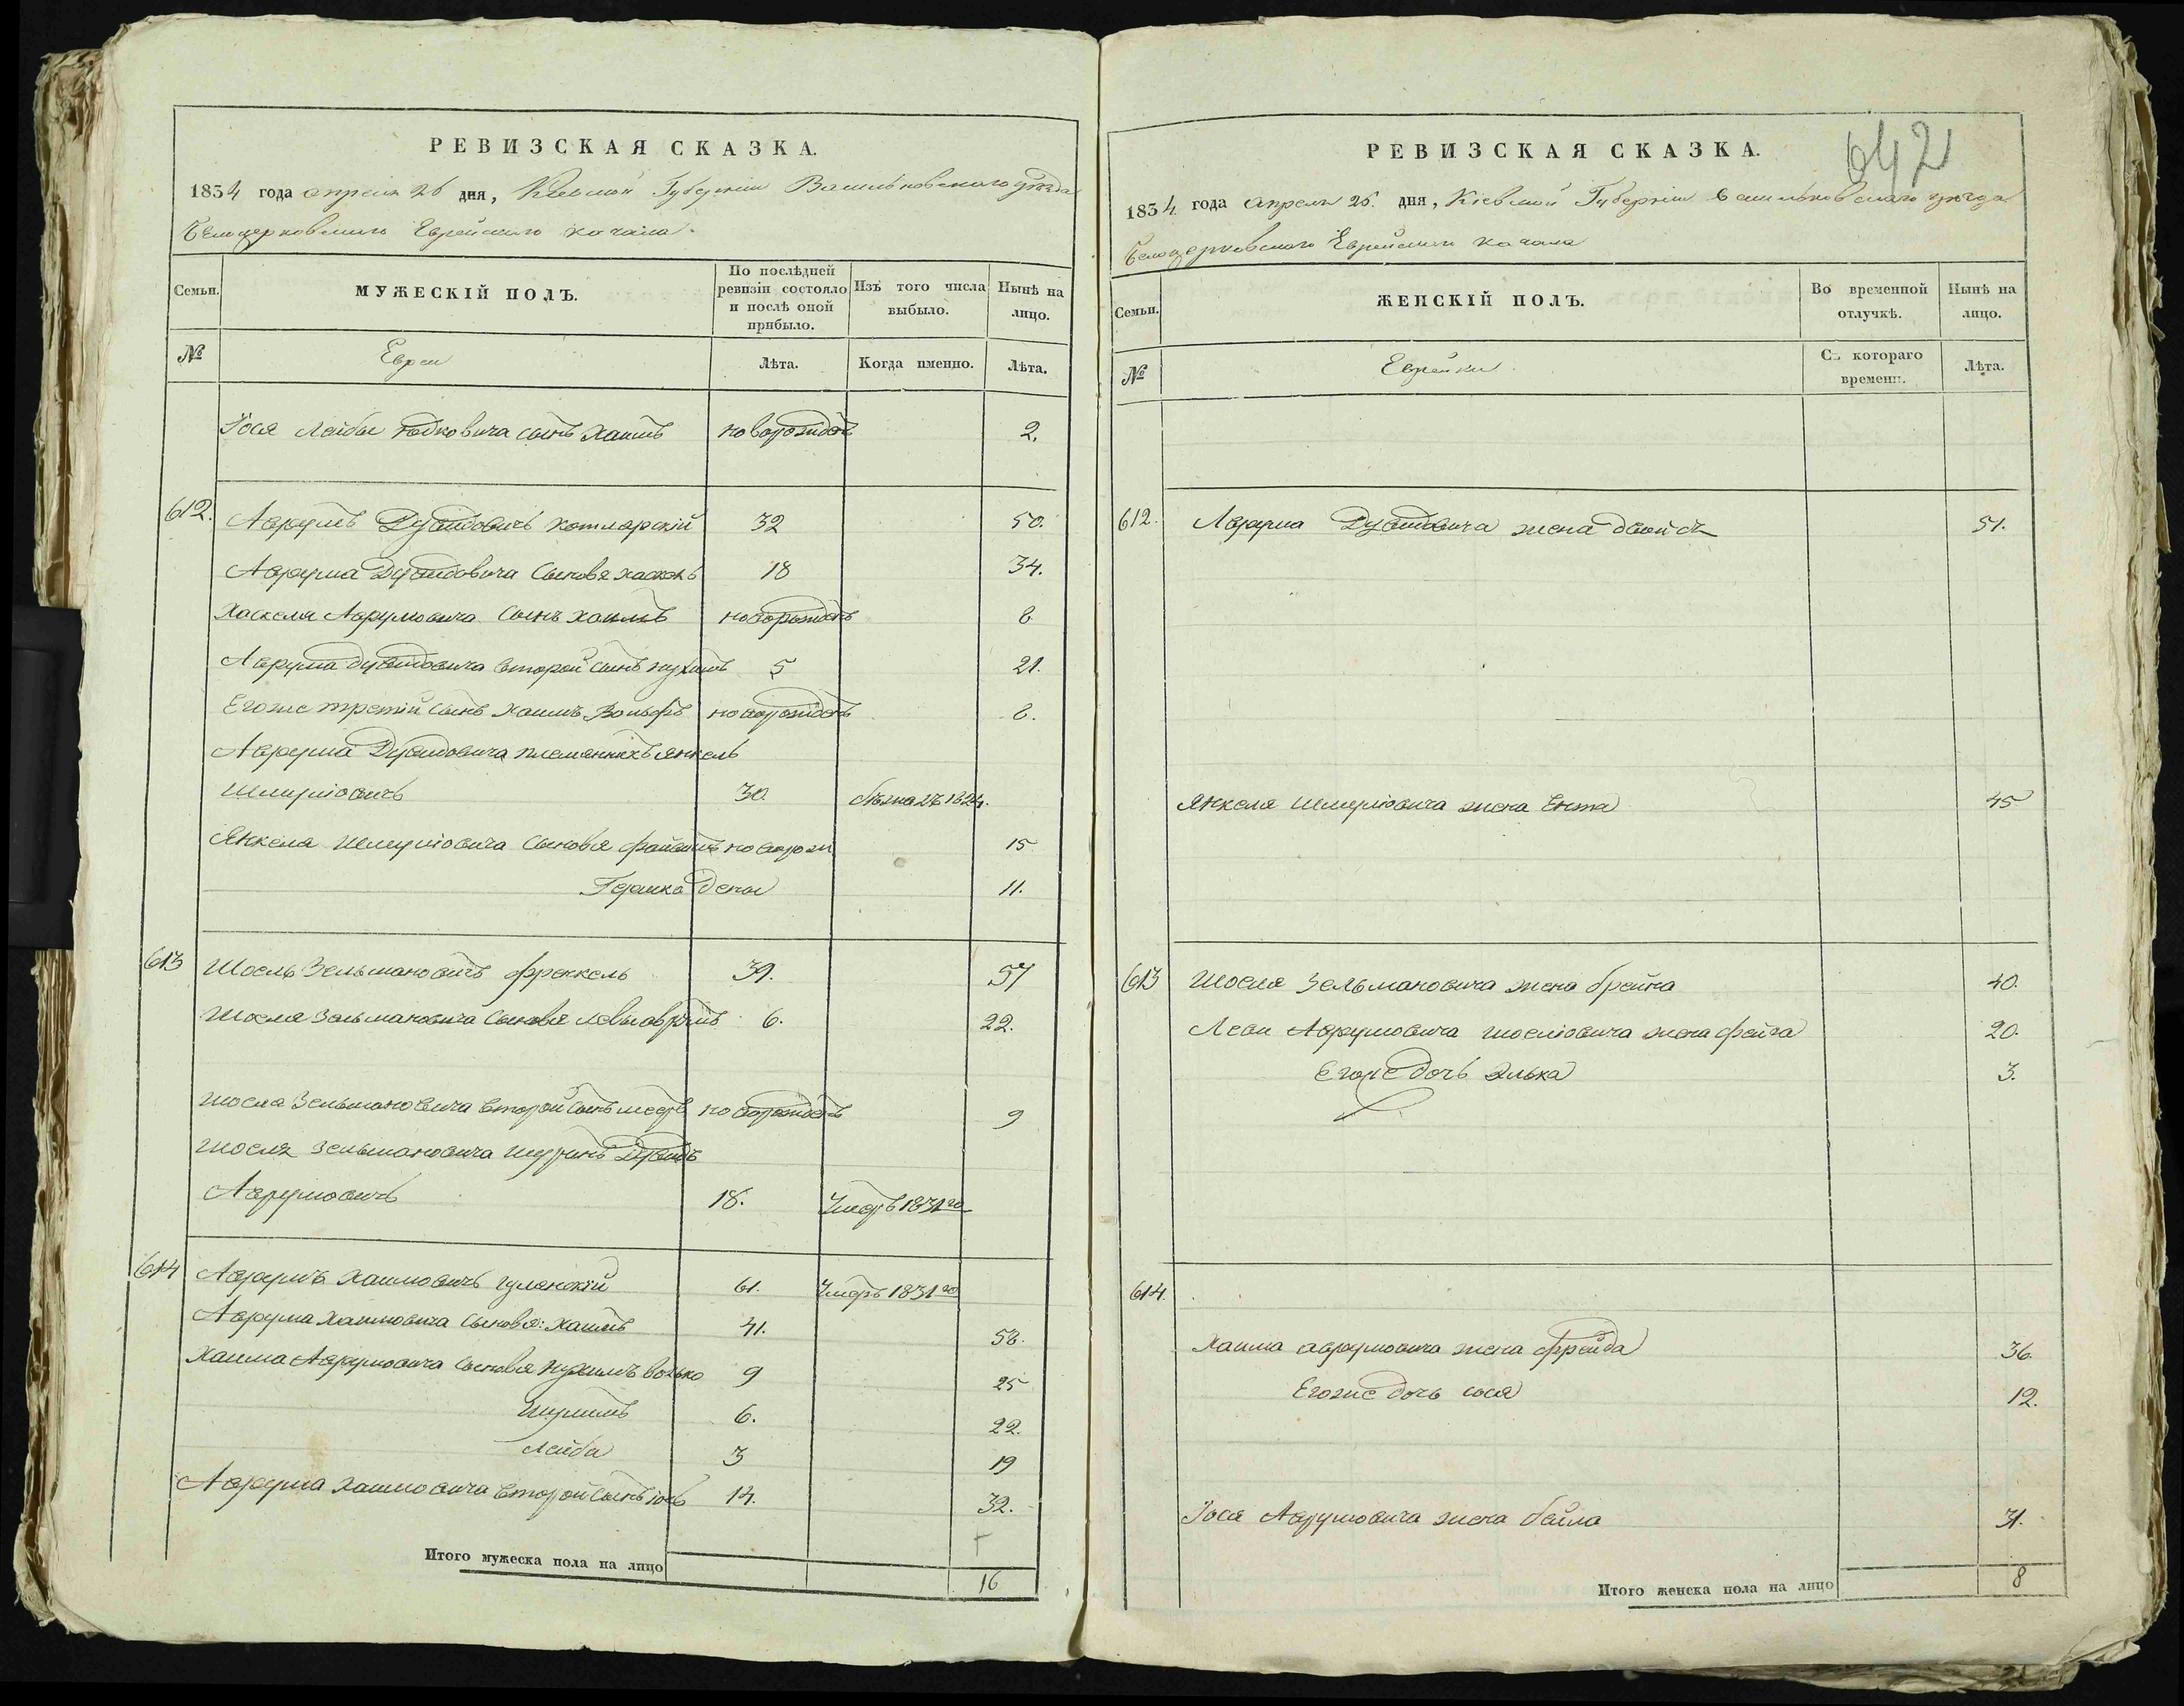 РЕВИЗСКАЯ СКАЗКА.
1834 года апреля 26 дня, Кіевской Губерніи Васильковскаго уѣзда
Белоцерковскаго Еврейскаго кагала.
Семьи. МУЖЕСКІЙ ПОЛЪ. По послѣдней ревизіи состояло и послѣ оной прибыло. Изъ того числа выбыло. Нынѣ на лицо.
№ Евреи Лѣта. Когда именно. Лѣта.
Іося Лейбы Юдковича сынъ Хаимъ новорожден 2.
612. Аврумъ Дувидовичъ Котлярскій 32 50.
Аврума Дувидовича Сыновя Хаскель 18 34.
Хаскеля Аврумовича Сынъ Хаимъ новорожденъ 8
Аврума Дувидовича второй сынъ Нухимъ 5 21.
Егоже третій сынъ Хаимъ Вольфъ новорожденъ 8.
Аврума Дувидовича племянникъ Янкель
Шмуліовичъ 30 1824.
Янкеля Шмуліовича Сыновя Файвишъ новорож 15
Гершко дены 11.
613 Шоель Зельмановичъ Френкель 39. 57
Шоеля Зельмановича Сыновя Левы Аврумъ 6. 22.
Шоеля Зельмановича второй сынъ Меєръ новорожденъ 9
Шоеля Зельмановича шуринъ Дувидъ
Аврумовичъ 18. Умеръ 1831го
614 Аврумъ Хаимовичъ Гулянскій 61. Умеръ 1831го
Аврума Хаимовича Сыновя: Хаимъ 41. 58.
Хаима Аврумовича Сыновя Нухимъ Волько 9 25
Шулимъ 6. 22.
Лейба 3 19
Аврума Хаимовича второй сынъ Іось 14. 32.
Итого мужеска пола на лицо 16
642
РЕВИЗСКАЯ СКАЗКА.
1834 года Апреля 26. дня, Кіевской Губерніи Васильковскаго уѣзда
Белоцерковскаго Еврейскаго Кагала
Семьи. ЖЕНСКІЙ ПОЛЪ. Во временной отлучкѣ. Нынѣ на лицо.
№ Еврейки. Съ котораго времени. Лѣта.
612. Аврума Дувидовича жена Двойся 51.
Янкеля Шмуліовича жена Ента 45
613 Шоеля Зельмановича жена Брейна 40.
Леви Аврумовича Шоеліовича жена Фейга 20.
Егоже дочь Элька 3.
614.
Хаима Аврумовича жена Фрейда 36.
Егоже дочь Сося 12.
Іося Аврумовича жена Бейла 31.
Итого женска пола на лицо 8